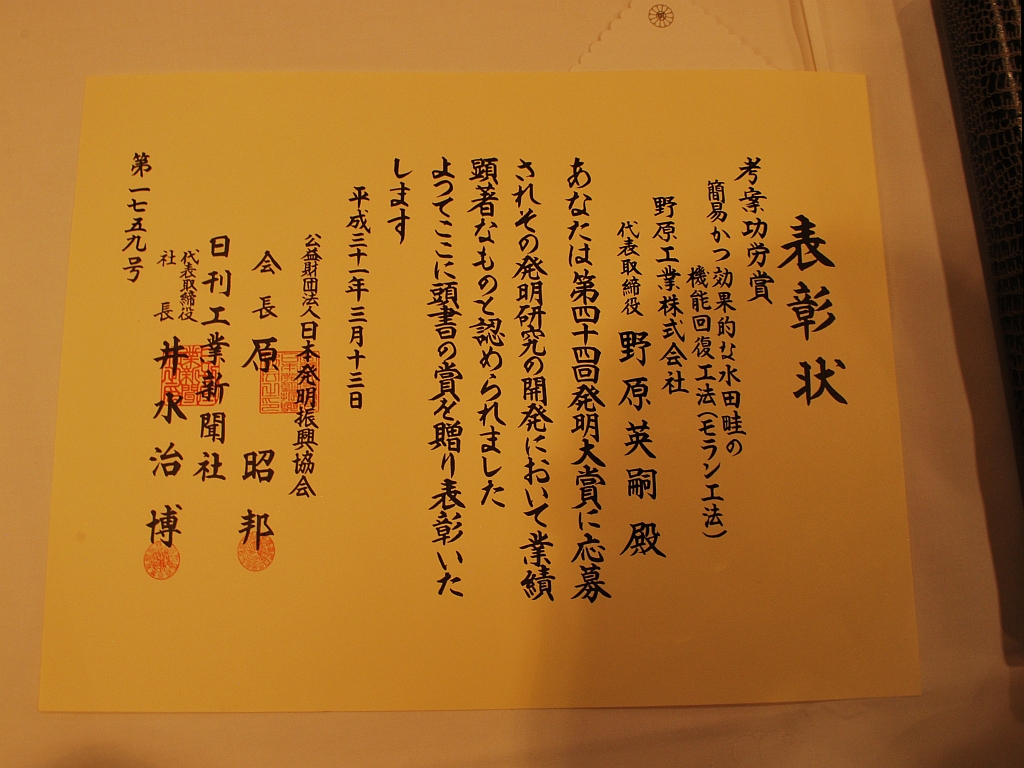 表彰状
考案功労賞
簡易かつ効果的な水田畦の
機能回復工法(モラン工法)
野原工業株式会社
代表取締役 野原英嗣 殿
あなたは第四十四回発明大賞に応募
されその発明研究の開発において業績
顕著なものと認められました
よってここに頭書の賞を贈り表彰いた
します
平成三十一年三月十三日
公益財団法人日本発明振興協会
会長 原 昭邦
日刊工業新聞社
代表取締役
社長 井水治博
第一七五九号